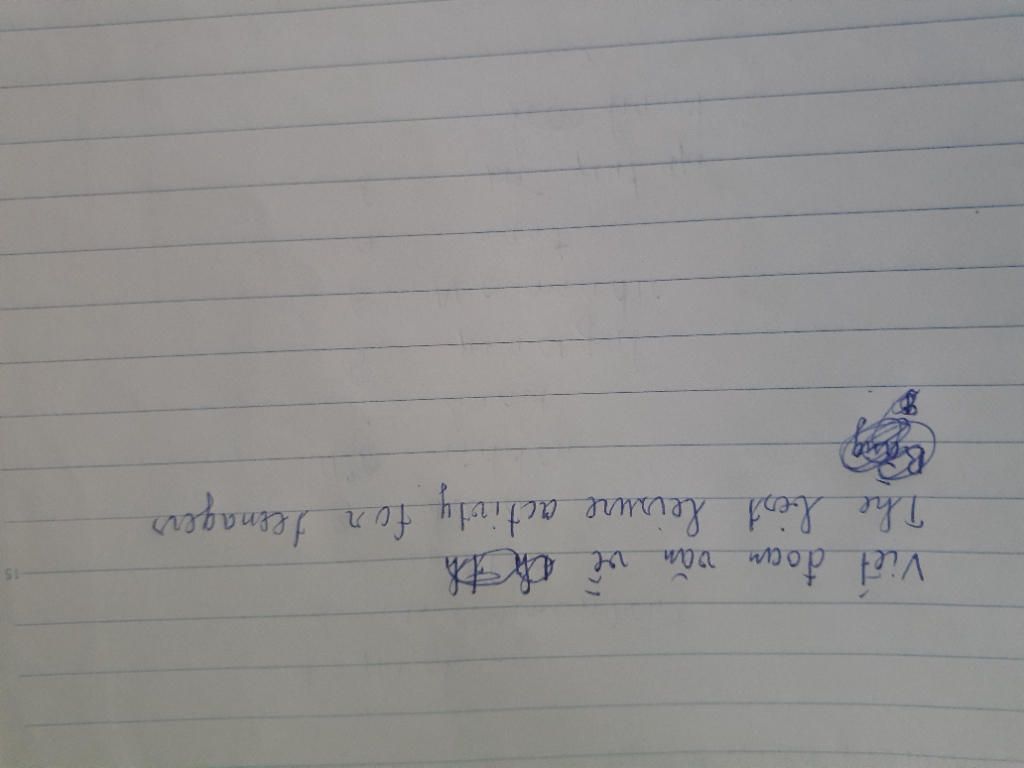 Viết đoạn văn về
The best leisure activity for teenagers
15